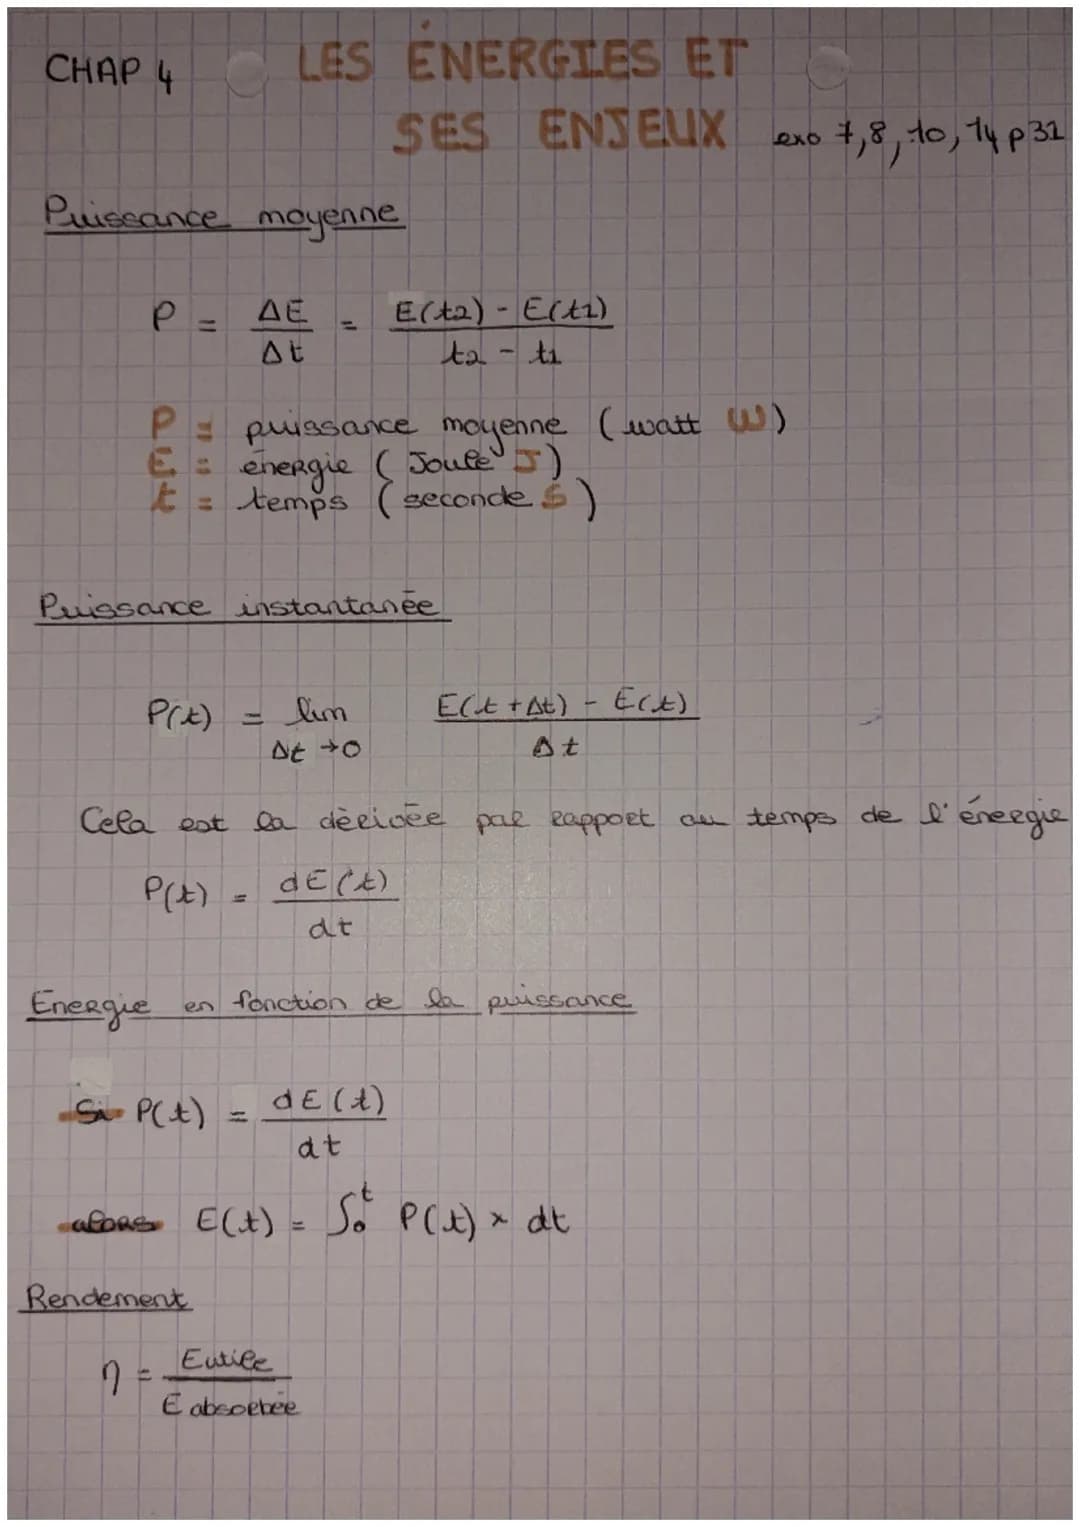 CHAP 4 LES ÉNERGIES ET
SES ENJEUX exo 7,8,10,14 p31
Puissance moyenne
P = ΔE/Δt = E(t2) - E(t1)/t2 - t1
P = puissance moyenne (watt W)
E = énergie (Joule J)
t = temps (seconde s)
Puissance instantanée
P(t) = lim Δt→0 E(t+Δt) - E(t)/Δt
Cela est la dérivée par rapport au temps de l'énergie
P(t) = dE(t)/dt
Energie en fonction de la puissance
Si P(t) = dE(t)/dt
alors E(t) = ∫₀ᵗ P(t) × dt
Rendement
η = Eutile/E absorbée